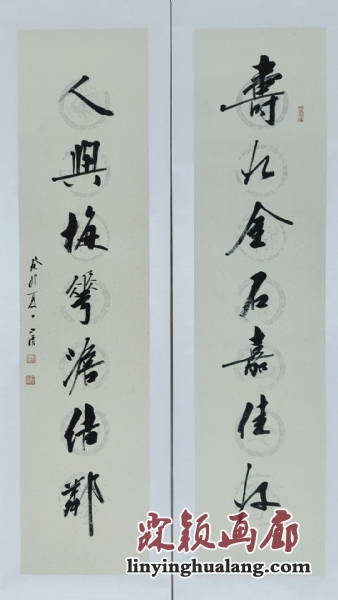 壽如金石嘉佳好
人與梅華澹結鄰
癸卯夏
霖颖画廊
linyinghualang.com